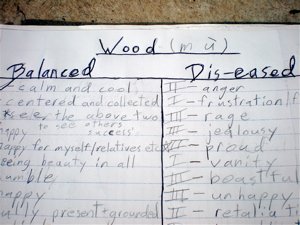 Wood (mù)
Balanced
calm and cool
centered and collected
see the above two
to see others
happy success
happy for myself/relatives etc
seeing beauty in all
umble
happy
ully present + grounded
Dis-eased
III - anger
I - frustration/f
III - rage
III - jealousy
III - proud
I - vanity
III - boastful
III - unhappy
III - retaliati